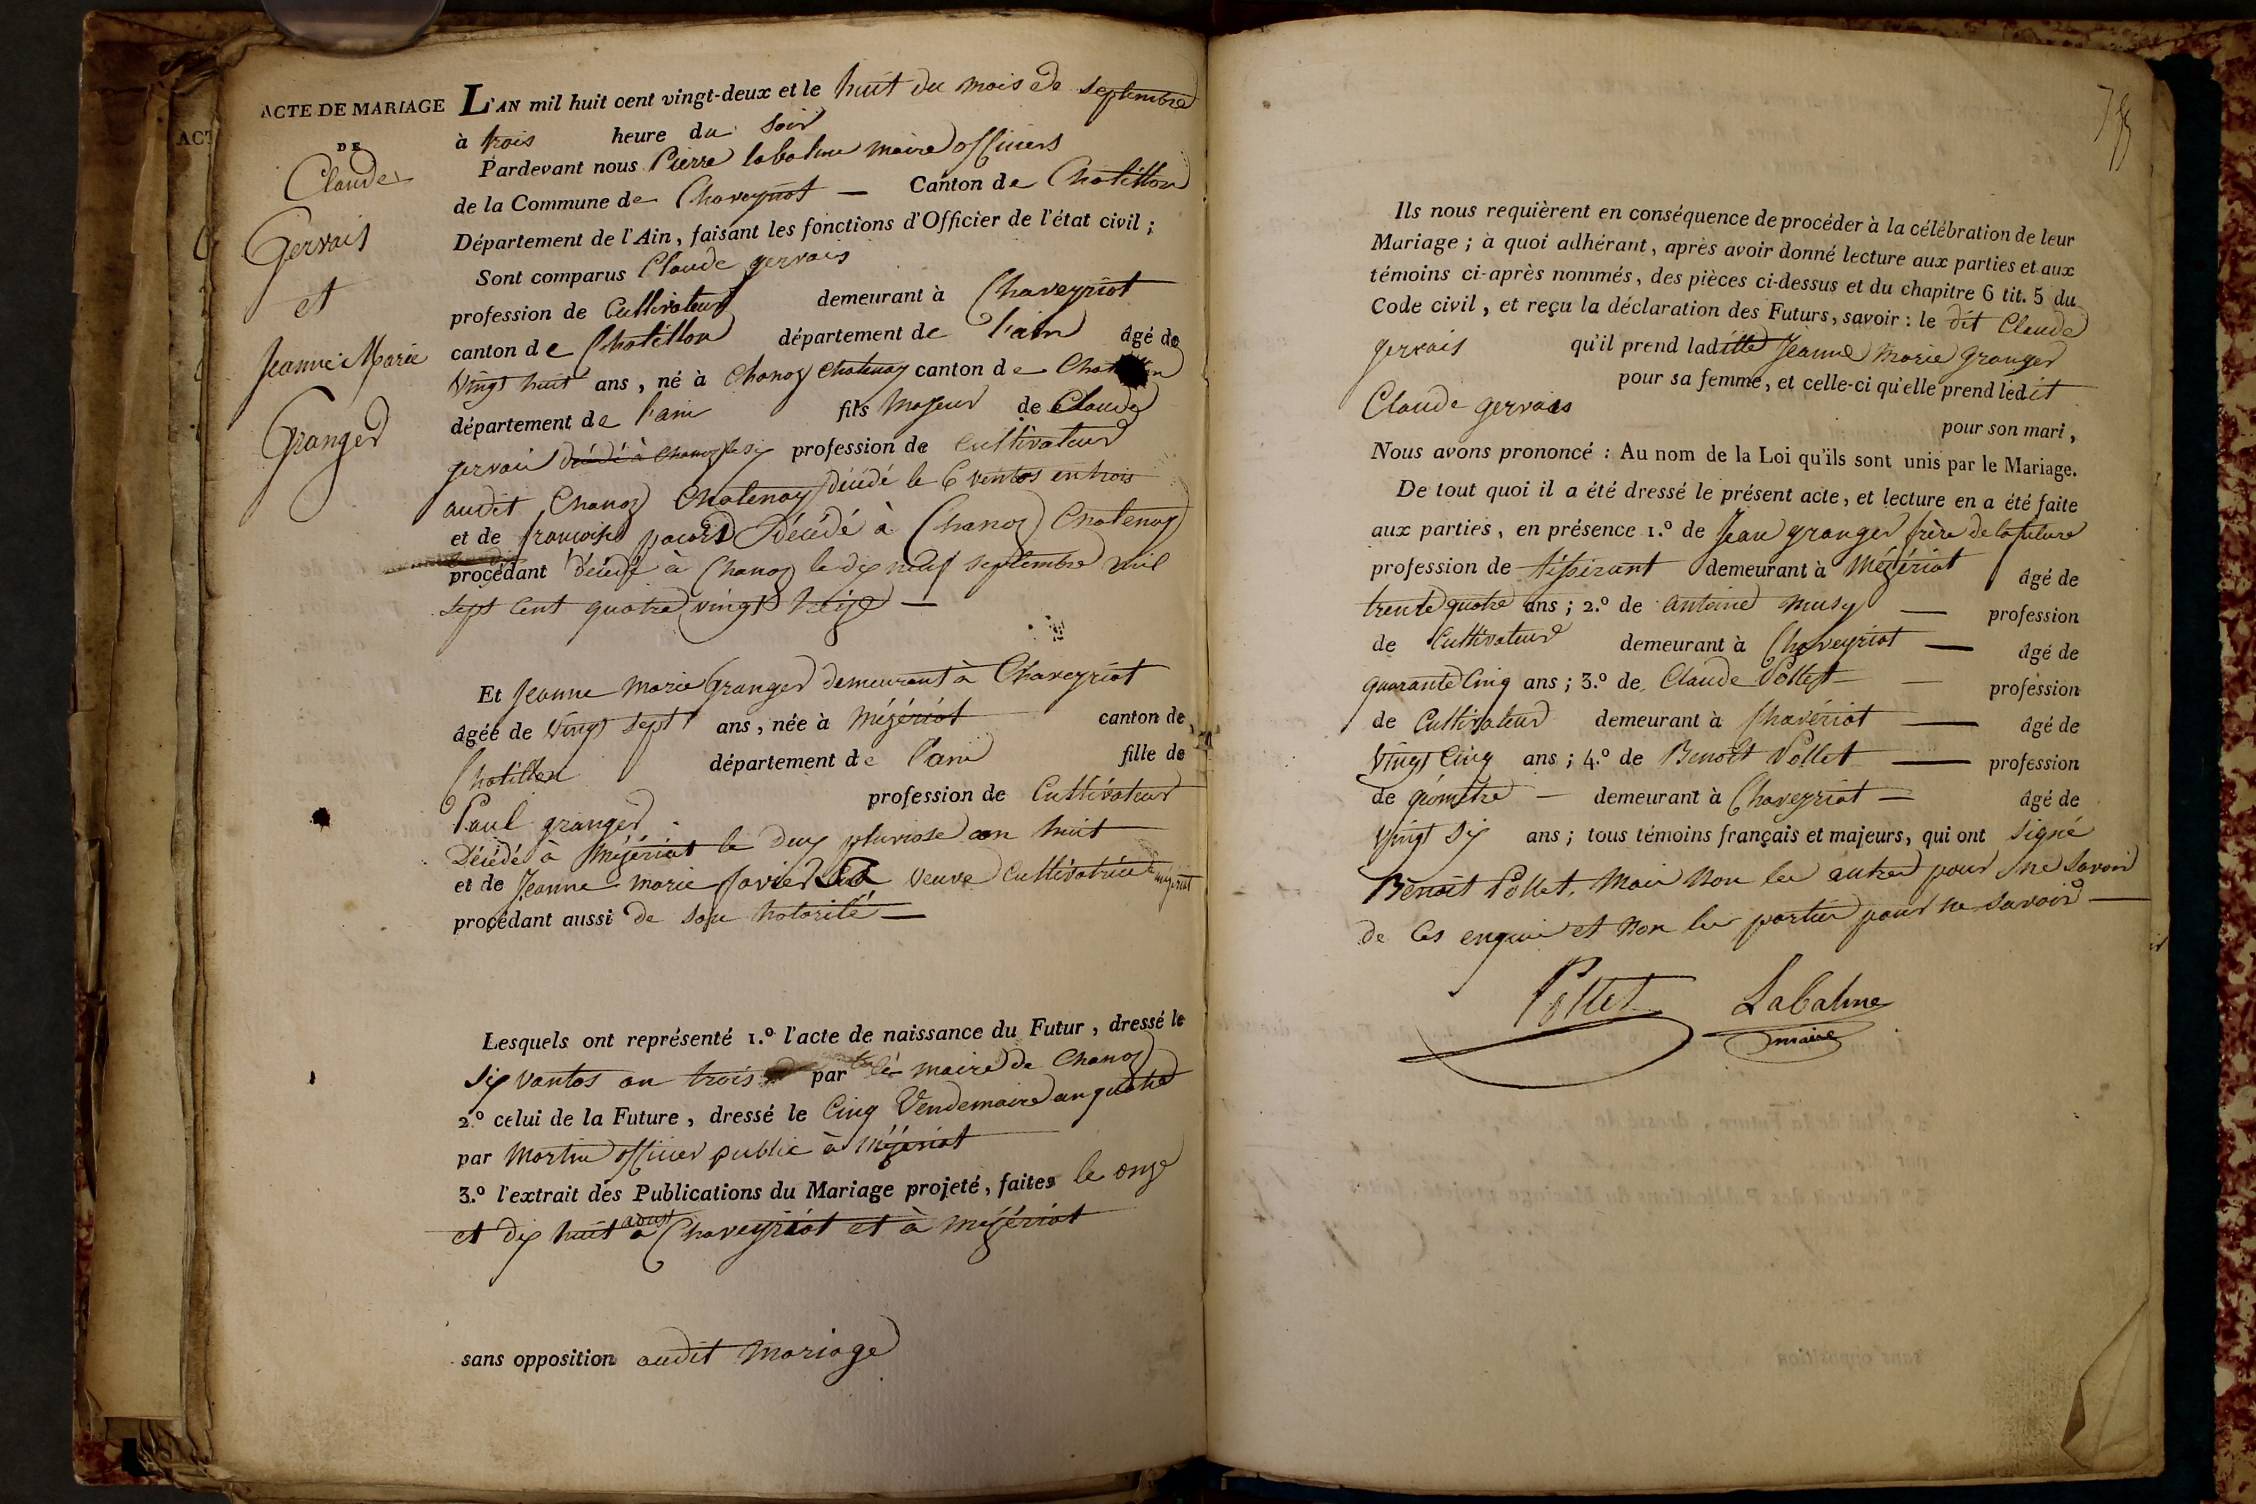 ACTE DE MARIAGE
DE
Claude
Gervais
et
Jeanne Marie
Granger
L'AN mil huit cent vingt-deux et le huit du mois de septembre
à trois heure du soir
Pardevant nous Pierre labalme maire officiers
de la Commune de Chaveyriot — Canton de Chatillon
Département de l'Ain, faisant les fonctions d'Officier de l'état civil ;
Sont comparus Claude gervais
profession de Cultivateur demeurant à Chaveyriot
canton de Chatillon département de l'ain âgé de
Vingt huit ans, né à Chanoz Chatenay canton de
département de l'ain fils Majeur de Claude
gervais décédé à Chanoz le six profession de Cultivateur
audit Chanoz Chatenay décédé le 6 ventos en trois
et de françoise Décédé à Chanoz Chatenay
procédant décédé à Chanoz le dix neuf septembre mil
sept cent quatre vingt treize —
Et Jeanne Marie Granger demeurant à Chaveyriot
âgée de Vingt sept ans, née à Mézériat canton de
Chatillon département de l'ain fille de
Paul granger profession de Cultivateur
Décédé à Mézériat le deux pluviose an huit
et de Jeanne marie favier veuve Cultivatrice
procédant aussi de son
Lesquels ont représenté 1.º l'acte de naissance du Futur, dressé le
six vantos an trois par le maire de Chanoz
2.º celui de la Future, dressé le Cinq Vendemaire an quatre
par Martin officier public à Mézériat
3.º l'extrait des Publications du Mariage projeté, faites le onze
et dix huit aoust à Chaveyriot et à Mézériat
sans opposition audit Mariage
Ils nous requièrent en conséquence de procéder à la célébration de leur
Mariage ; à quoi adhérant, après avoir donné lecture aux parties et aux
témoins ci-après nommés, des pièces ci-dessus et du chapitre 6 tit. 5 du
Code civil, et reçu la déclaration des Futurs, savoir : le dit Claude
gervais qu'il prend laditte Jeanne Marie Granger
pour sa femme, et celle-ci qu'elle prend ledit
Claude gervais
pour son mari,
Nous avons prononcé : Au nom de la Loi qu'ils sont unis par le Mariage.
De tout quoi il a été dressé le présent acte, et lecture en a été faite
aux parties, en présence 1.º de Jean granger frère de la future
profession de tisserant demeurant à Mézériat âgé de
trente quatre ans ; 2.º de Antoine Musy — profession
de Cultivateur demeurant à Chaveyriat — âgé de
quarante Cinq ans ; 3.º de Claude Pollet — profession
de Cultivateur demeurant à Chavériat — âgé de
Vingt Cinq ans ; 4.º de Benoît Pollet — profession
de géomètre — demeurant à Chaveyriat — âgé de
Vingt six ans ; tous témoins français et majeurs, qui ont signé
Benoit Pollet, Mais Non les autres pour ne Savoir
de Ces enquis et Non les parties pour ne savoir —
Pollet Labalme
maire